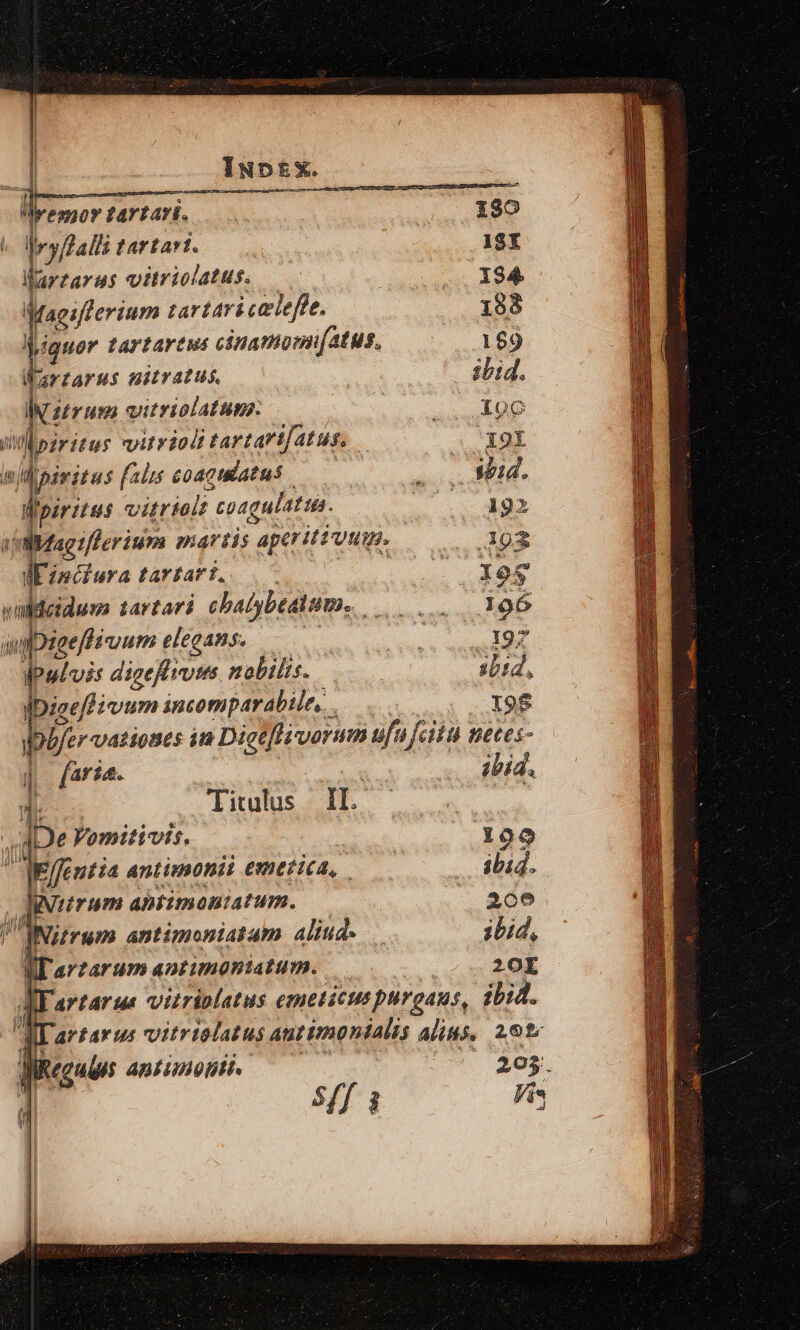 INDEX.
remor tartari. 180
ryſtalli tartari. 181
artarus vitriolatus. 184
Magiſterium tartari cæleſte. 188
iquor tartareus cinamomiſatus. 189
artarus nitratus. ibid.
Nitrum vitriolatum. 190
piritus vitrioli tartariſatus. 191
piritus ſalis coagulatus ibid.
piritus vitrioli coagulatus. 192
Magiſterium martis aperitivum. 193
inctura tartari. 195
cidum tartari chalybeatum. 196
Digeſtivum elegans. 197
Pulvis digeſtivus nobilis. ibid.
Digeſtivum incomparabile. 198
Obſervationes in Digeſtivorum uſu ſcitu neceſ-
ſaria. ibid.
Titulus II.
De Vomitivis. 199
Eſſentia antimonii emetica, ibid.
Nitrum antimoniatum. 200
Nitrum antimoniatum aliud. ibid.
Tartarum antimoniatum. 201
Tartarus vitriolatus emeticus purgans, ibid.
Tartarus vitriolatus antimonialis alius. 202
Regulus antimonii. 203.
Sſſ 3 Vis